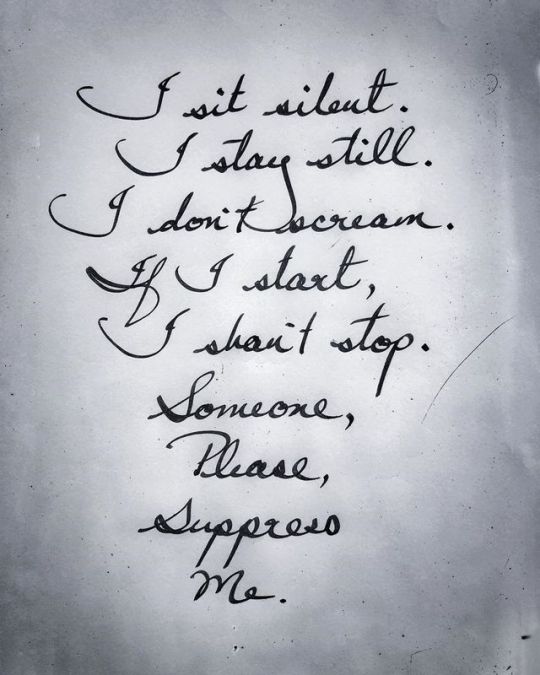 I sit silent.
I stay still.
I don't scream.
If I start,
I shan't stop.
Someone,
Please,
Suppress
Me.